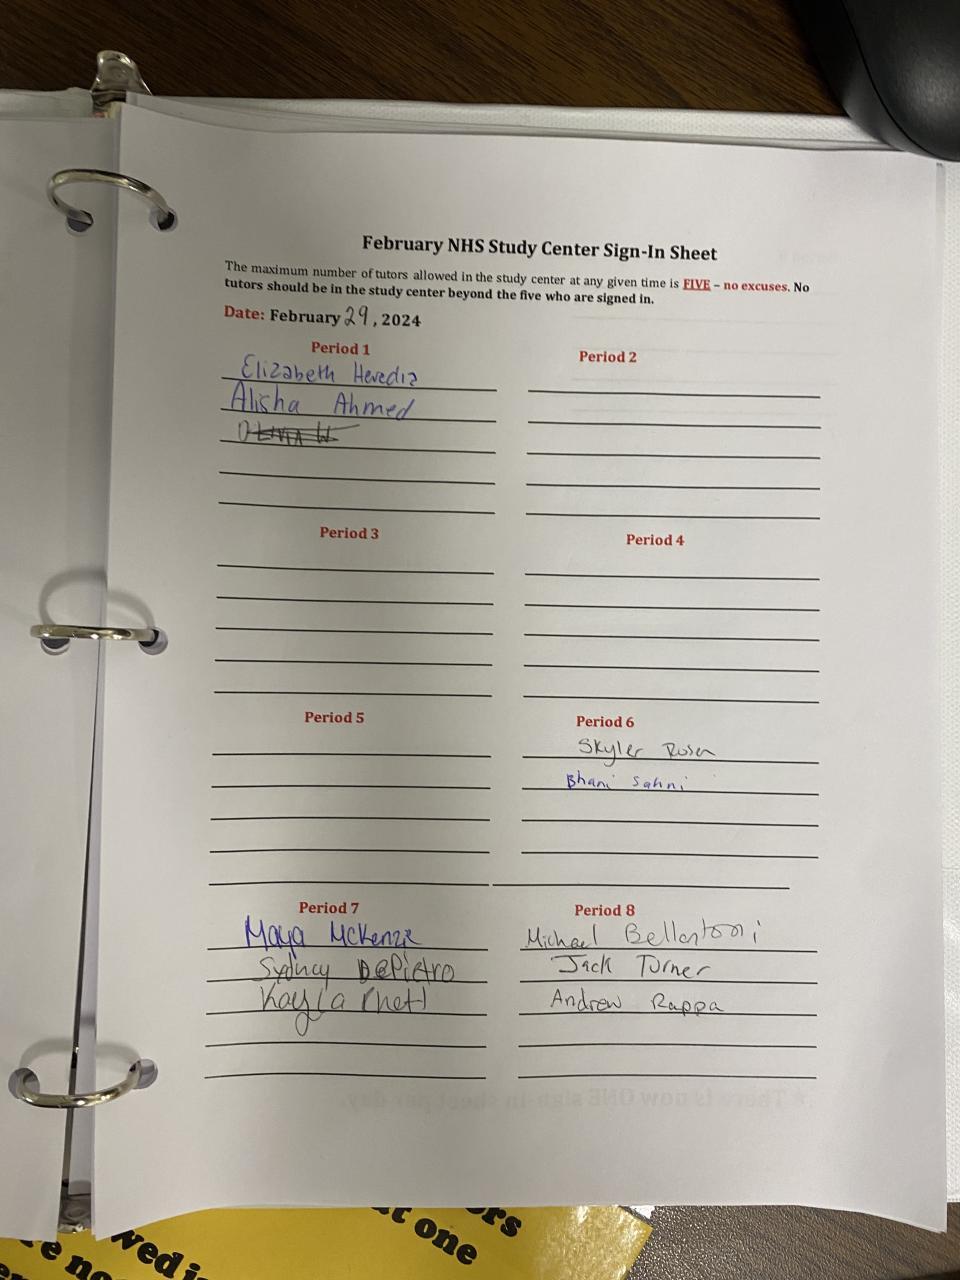 February NHS Study Center Sign-In Sheet
The maximum number of tutors allowed in the study center at any given time is FIVE – no excuses. No
tutors should be in the study center beyond the five who are signed in.
Date: February 29, 2024
Period 1
Elizabeth Heredia
Alisha Ahmed
Period 2
Period 3
Period 4
Period 5
Period 6
Skyler Rosen
Bhani Sahni
Period 7
Maya McKenzie
Sydney DePietro
Kayla
Period 8
Michael Bellantoni
Jack Turner
Andrew Rappa
ors
t one
wed i
e no